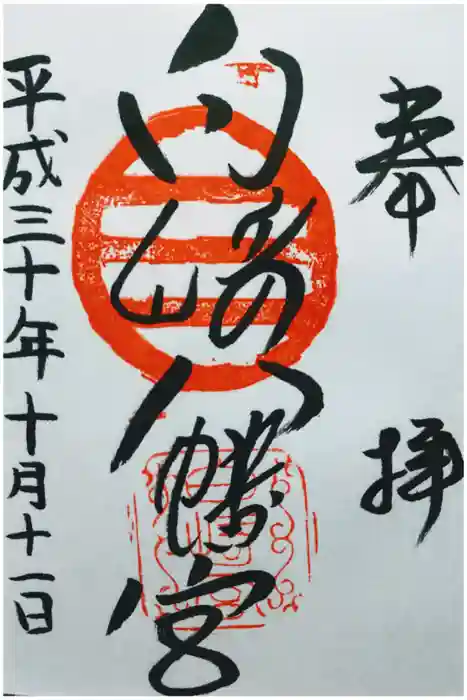 奉拝
向山八幡宮
平成三十年十月十一日